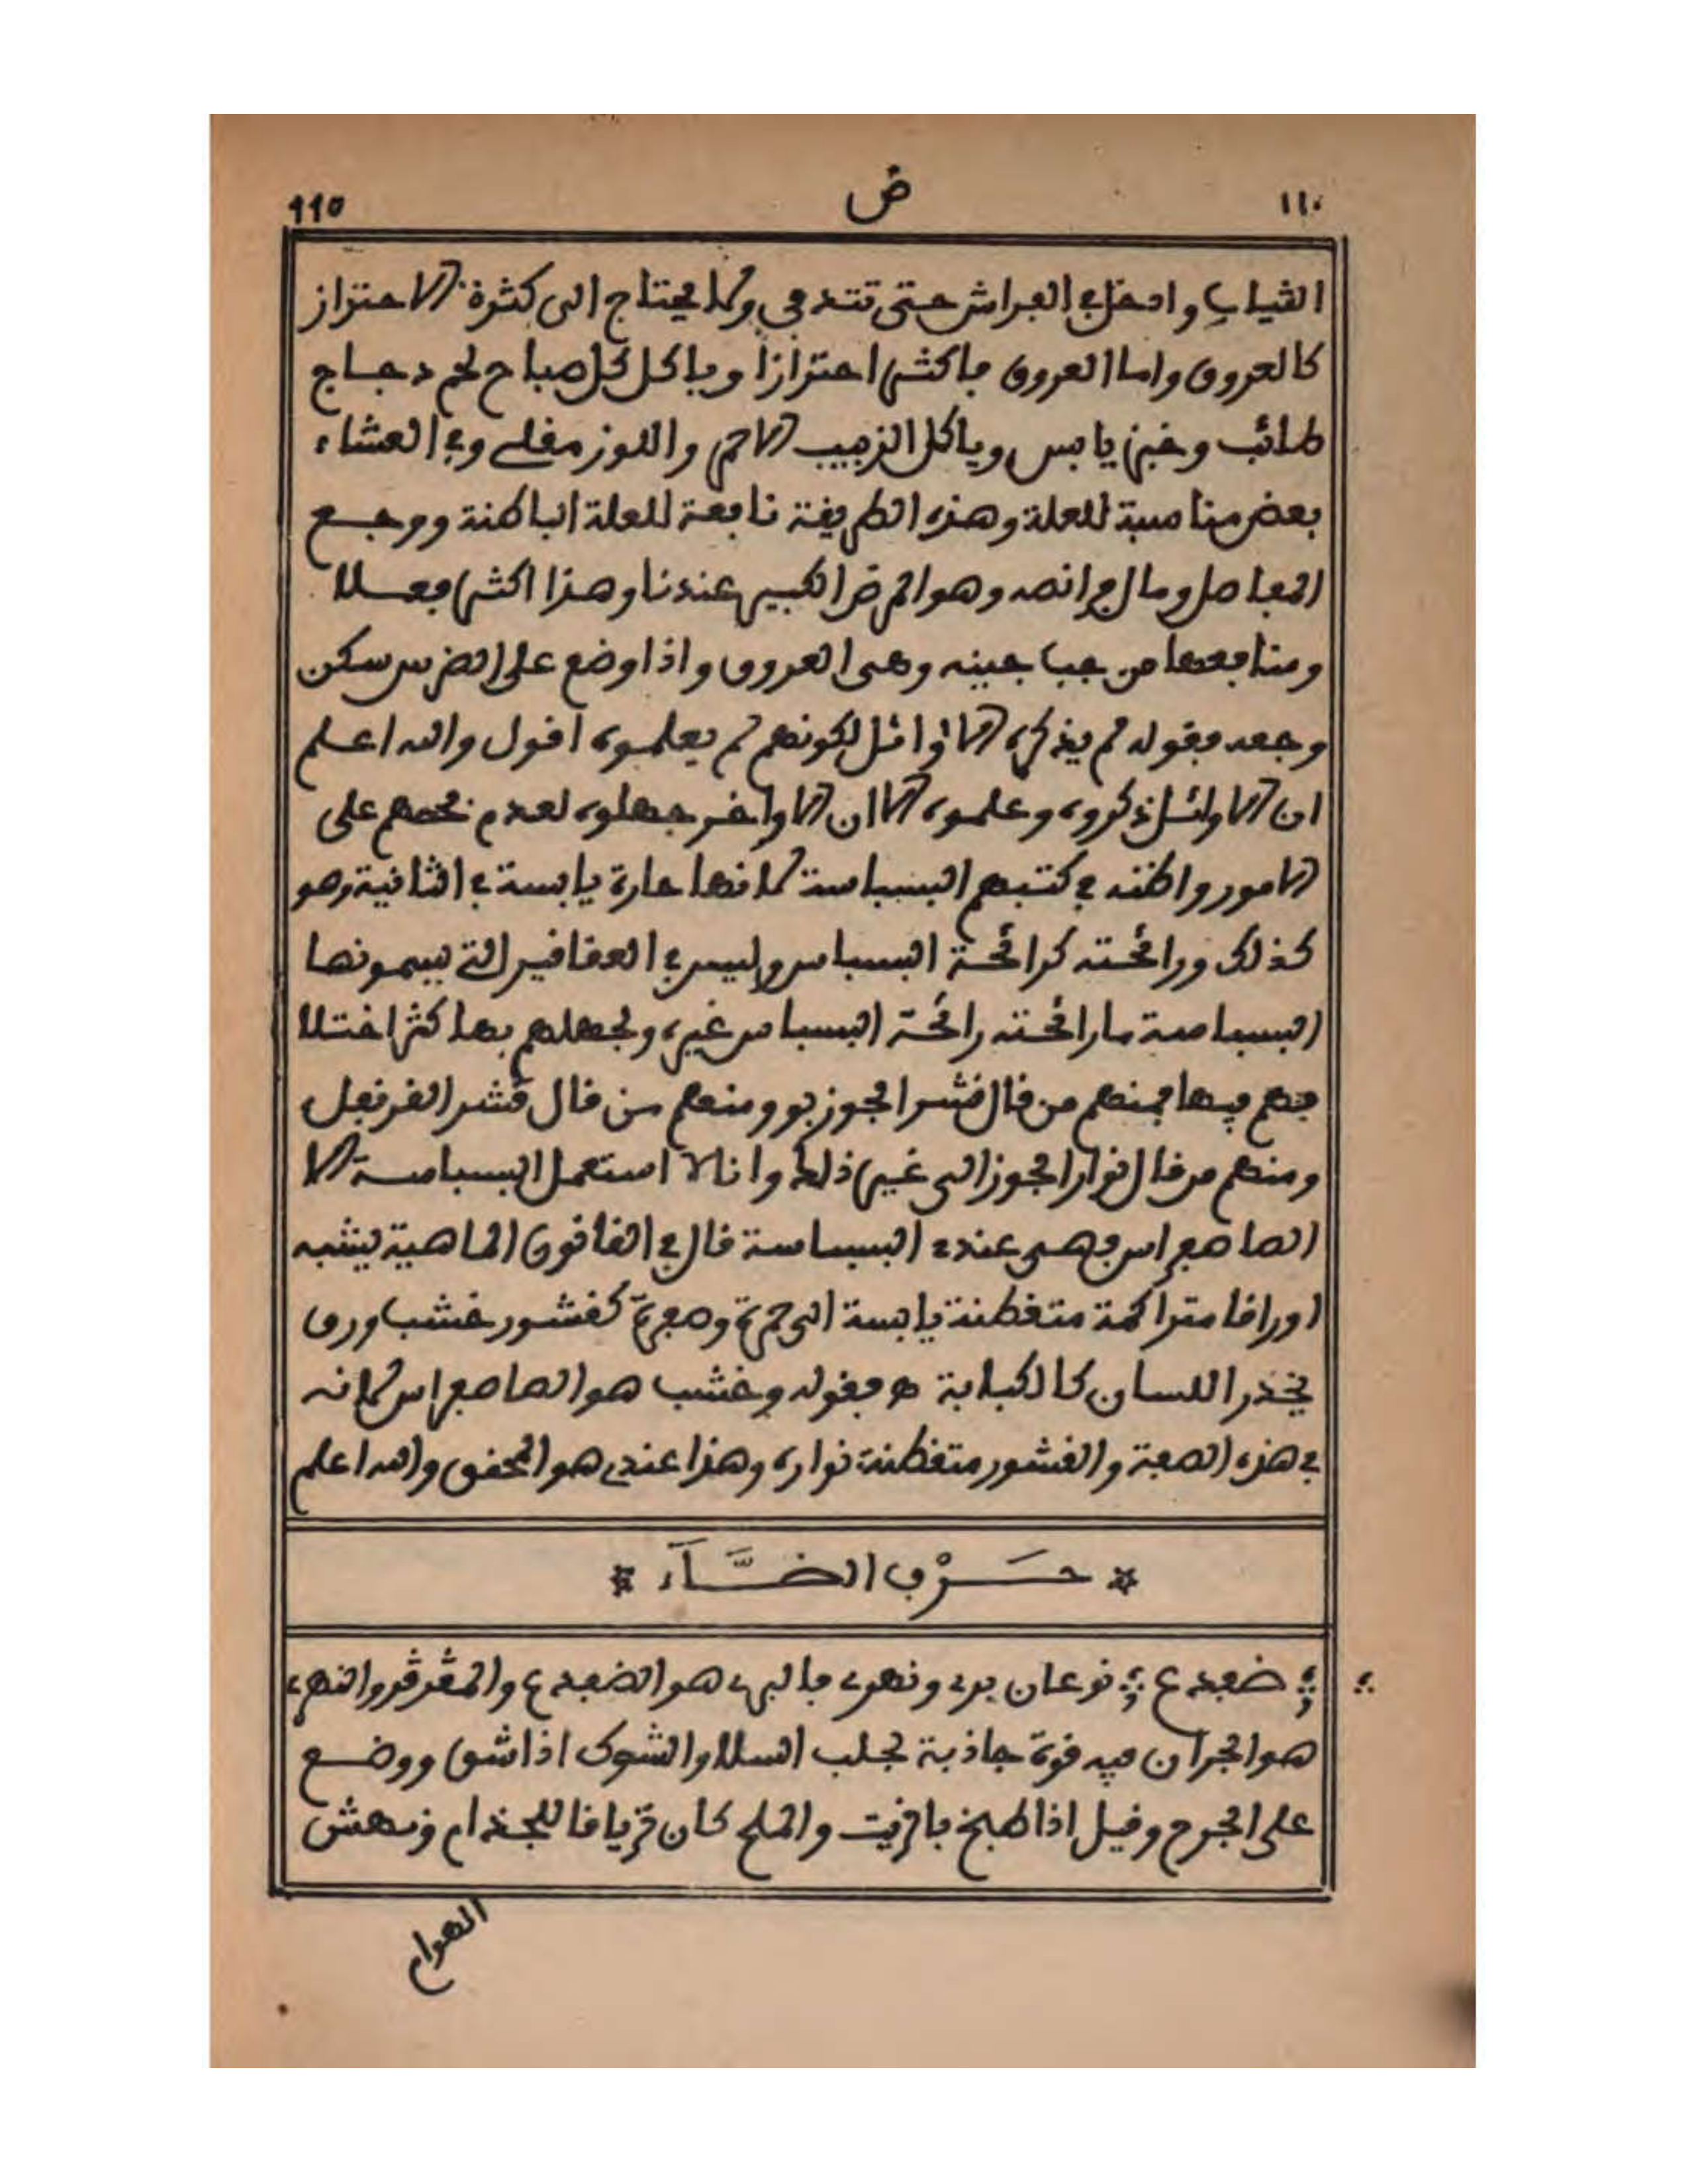 ١١٠ ض 110
الثياب وادخل في الفراش حتى تتدفى ولا يحتاج الى كثرة الاحتراز
كالعروق واما العروق فاكثر احترازا وياكل كل صباح لحم دجاج
طائب وخبز يابس وياكل الزبيب الاحمر واللوز مقلي وفي العشاء
بعض مناسبة للعلة وهذه الطريقة نافعة للعلة الباطنة ووجع
المفاصل ومال افرانصه وهو المرض الكبير عندنا وهذا اكثر فعلا
ومنافعها من حب جينه وهى العروق واذا وضع على الضرس سكن
وجعه فقوله لم يذكره الاوائل لكونهم لم يعلموه اقول والله اعلم
ان الاوائل ذكروه وعلموه الا ان الاواخر جهلوه لعدم فحصهم على
الامور واظنه في كتبهم البسباسة لانها حارة يابسة في الثانية وهو
كذلك ورائحته كرائحة البسباس وليس في العقاقير التي يسمونها
البسباسة ما رائحته رائحة البسباس غيره ولجهلهم بها كثر اختلا
فهم فيها فمنهم من قال قشر الجوز بو ومنهم من قال قشر القرنفل
ومنهم من قال نوار الجوز الى غير ذلك وانا لا استعمل البسباسة الا
الصاصفراس فهى عندي البسباسة قال في القانون الماهية يشبه
اوراقا متراكمة متغطنة يابسة الى حمرة وصفرة كقشور خشب وورق
يخذر اللسان كالكبابة ه فقوله وخشب هو الصاصفراس لانه
في هذه الصفة والقشور متغطنة نواره وهذا عندي هو المحقق والله اعلم
* حَــرْف الضَّــآء *
ضفدع نوعان بري ونهري فالبري هو الضفدع والمڨرڨر والنهري
هو الجران فيه قوة جاذبة لجلب السلا والشوك اذا شق ووضع
على الجرح وقيل اذا طبخ بالزيت والملح كان ترياقا للجذام ونهش
الهوام